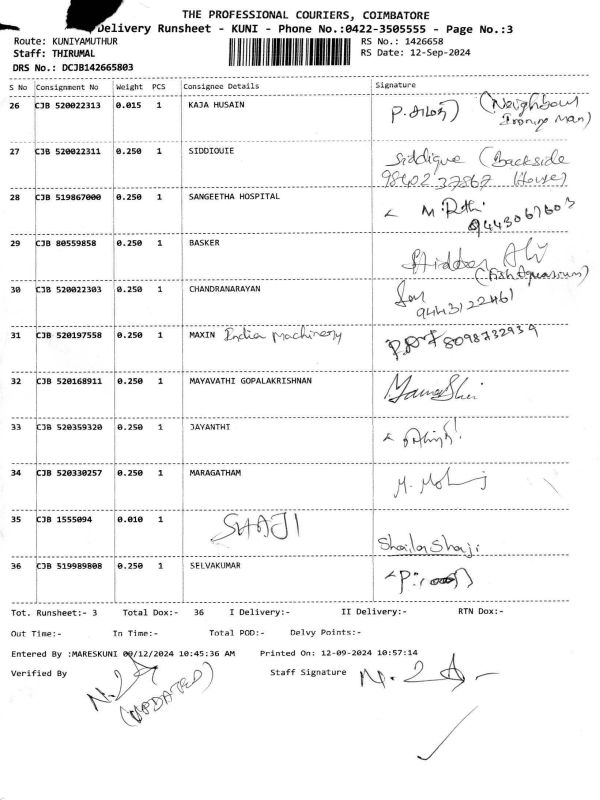 THE PROFESSIONAL COURIERS, COIMBATORE
Delivery Runsheet - KUNI - Phone No.:0422-3505555 - Page No.:3
Route: KUNIYAMUTHUR RS No.: 1426658
Staff: THIRUMAL RS Date: 12-Sep-2024
DRS No.: DCJB142665803
S No Consignment No Weight PCS Consignee Details Signature
26 CJB 520022313 0.015 1 KAJA HUSAIN (Neighbour
Ironing Man)
27 CJB 520022311 0.250 1 SIDDIOUIE Siddique (Backside
98402 37867 House)
28 CJB 519867000 0.250 1 SANGEETHA HOSPITAL
9443067603
29 CJB 80559858 0.250 1 BASKER
(Fish Aquarium)
30 CJB 520022303 0.250 1 CHANDRANARAYAN
9443122461
31 CJB 520197558 0.250 1 MAXIN India Machinery 8098732939
32 CJB 520168911 0.250 1 MAYAVATHI GOPALAKRISHNAN
33 CJB 520359320 0.250 1 JAYANTHI
34 CJB 520330257 0.250 1 MARAGATHAM
35 CJB 1555094 0.010 1 SHAJI Shaila Shaji
36 CJB 519989808 0.250 1 SELVAKUMAR
Tot. Runsheet:- 3 Total Dox:- 36 I Delivery:- II Delivery:- RTN Dox:-
Out Time:- In Time:- Total POD:- Delvy Points:-
Entered By :MARESKUNI 09/12/2024 10:45:36 AM Printed On: 12-09-2024 10:57:14
Verified By Staff Signature
(UPDATED)